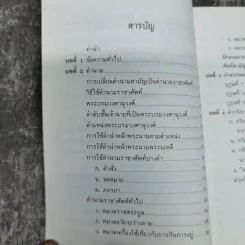 สารบัญ
คำนำ
บทที่ ๑ ข้อความทั่วไป
บทที่ ๒ คำนาม
การเปลี่ยนคำนามสามัญเป็นคำนามราชาศัพท์
วิธีใช้คำนามราชาศัพท์
พระบรมวงศานุวงศ์
ลำดับชั้นเจ้านายที่เป็นพระบรมวงศานุวงศ์
ตำแหน่งพระบรมวงศานุวงศ์
การใช้คำนำหน้าพระนามตามตำแหน่ง
การใช้คำนำหน้าพระนามพระมเหสี
การใช้คำนามราชาศัพท์บางคำ
ก. คำสั่ง
ข. จดหมาย
ค. ภรรยา
คำนามราชาศัพท์ทั่วไป
๑. หมวดราชตระกูล
๒. หมวดอวัยวะร่างกาย
๓. หมวดเครื่องใช้เกี่ยวกับการกินการอยู่